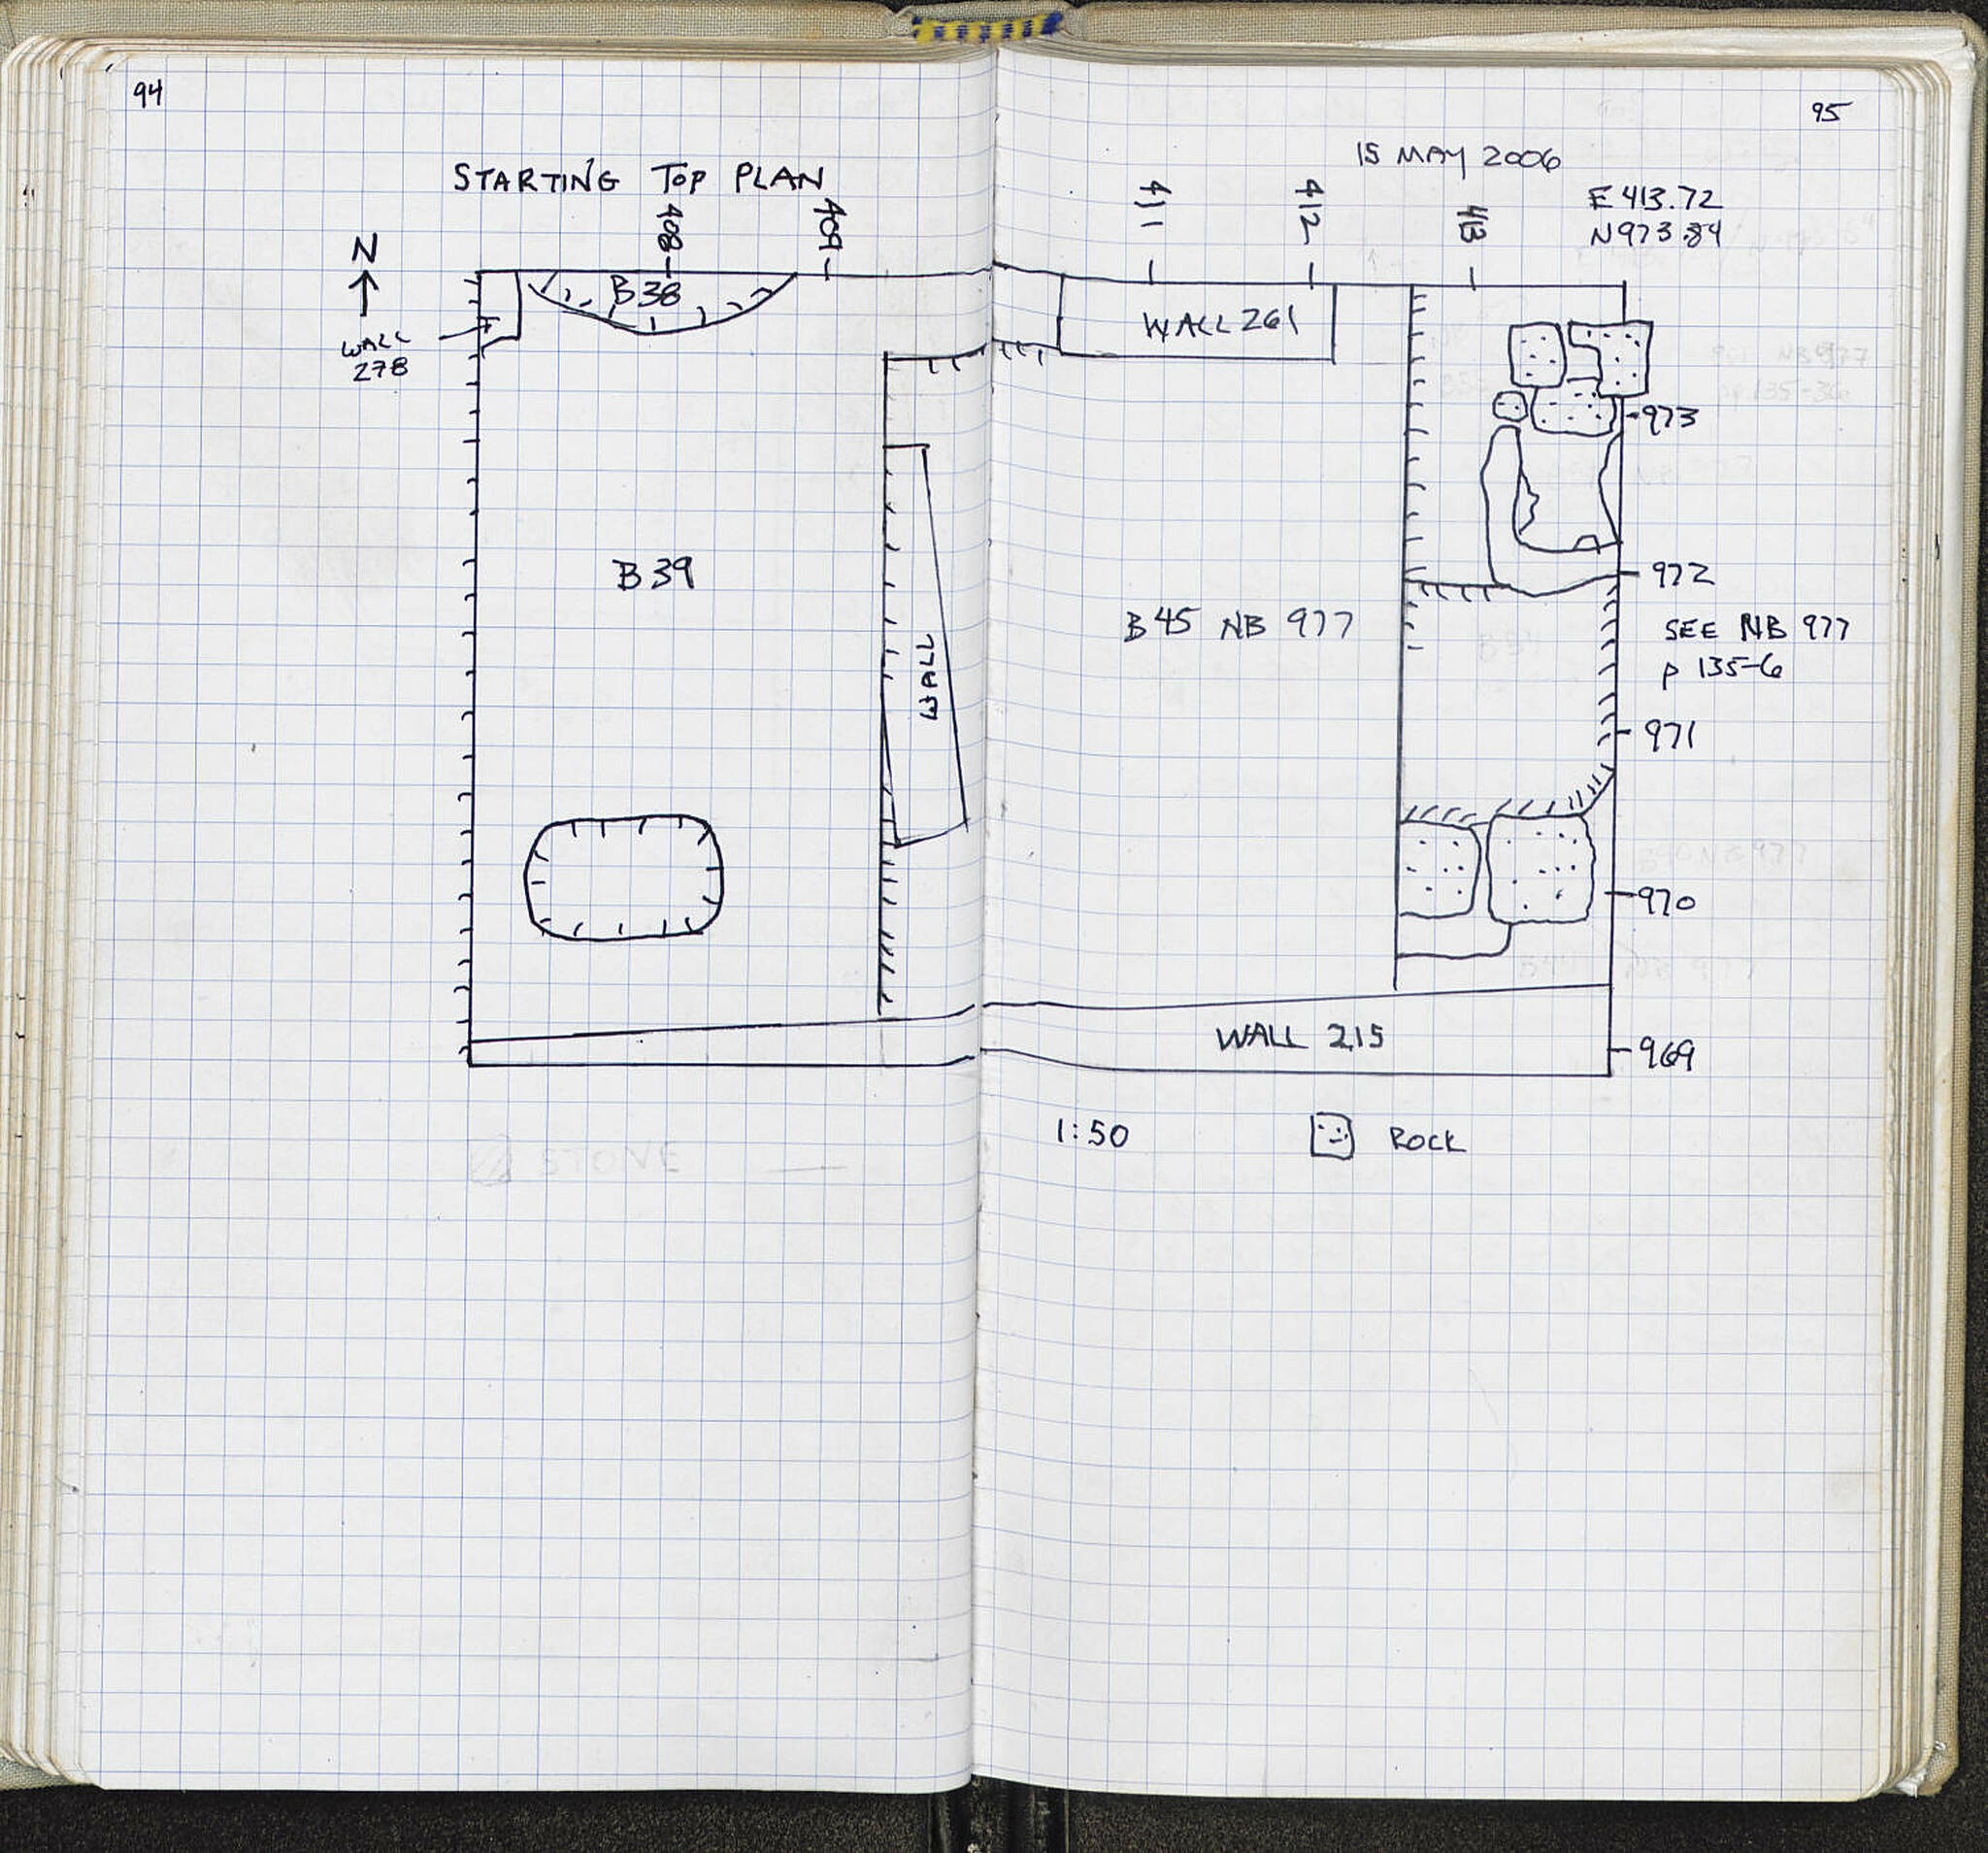 94
STARTING TOP PLAN
N
WALL
278
408
409
B38
B39
WALL
95
15 MAY 2006
411
412
413
E 413.72
N 973.84
WALL 261
973
972
B45 NB 977
SEE NB 977
p 135-6
971
970
WALL 215
969
1:50
ROCK
STONE